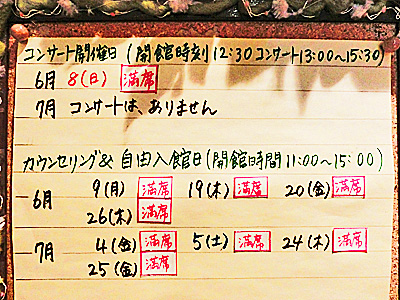 コンサート開催日(開館時刻12:30コンサート13:00~15:30)
6月 8(日) 満席
7月 コンサートは、ありません
カウンセリング& 自由入館日(開館時間11:00~15:00)
6月 9(月) 満席 19(木) 満席 20(金) 満席
26(木) 満席
7月 4(金) 満席 5(土) 満席 24(木) 満席
25(金) 満席